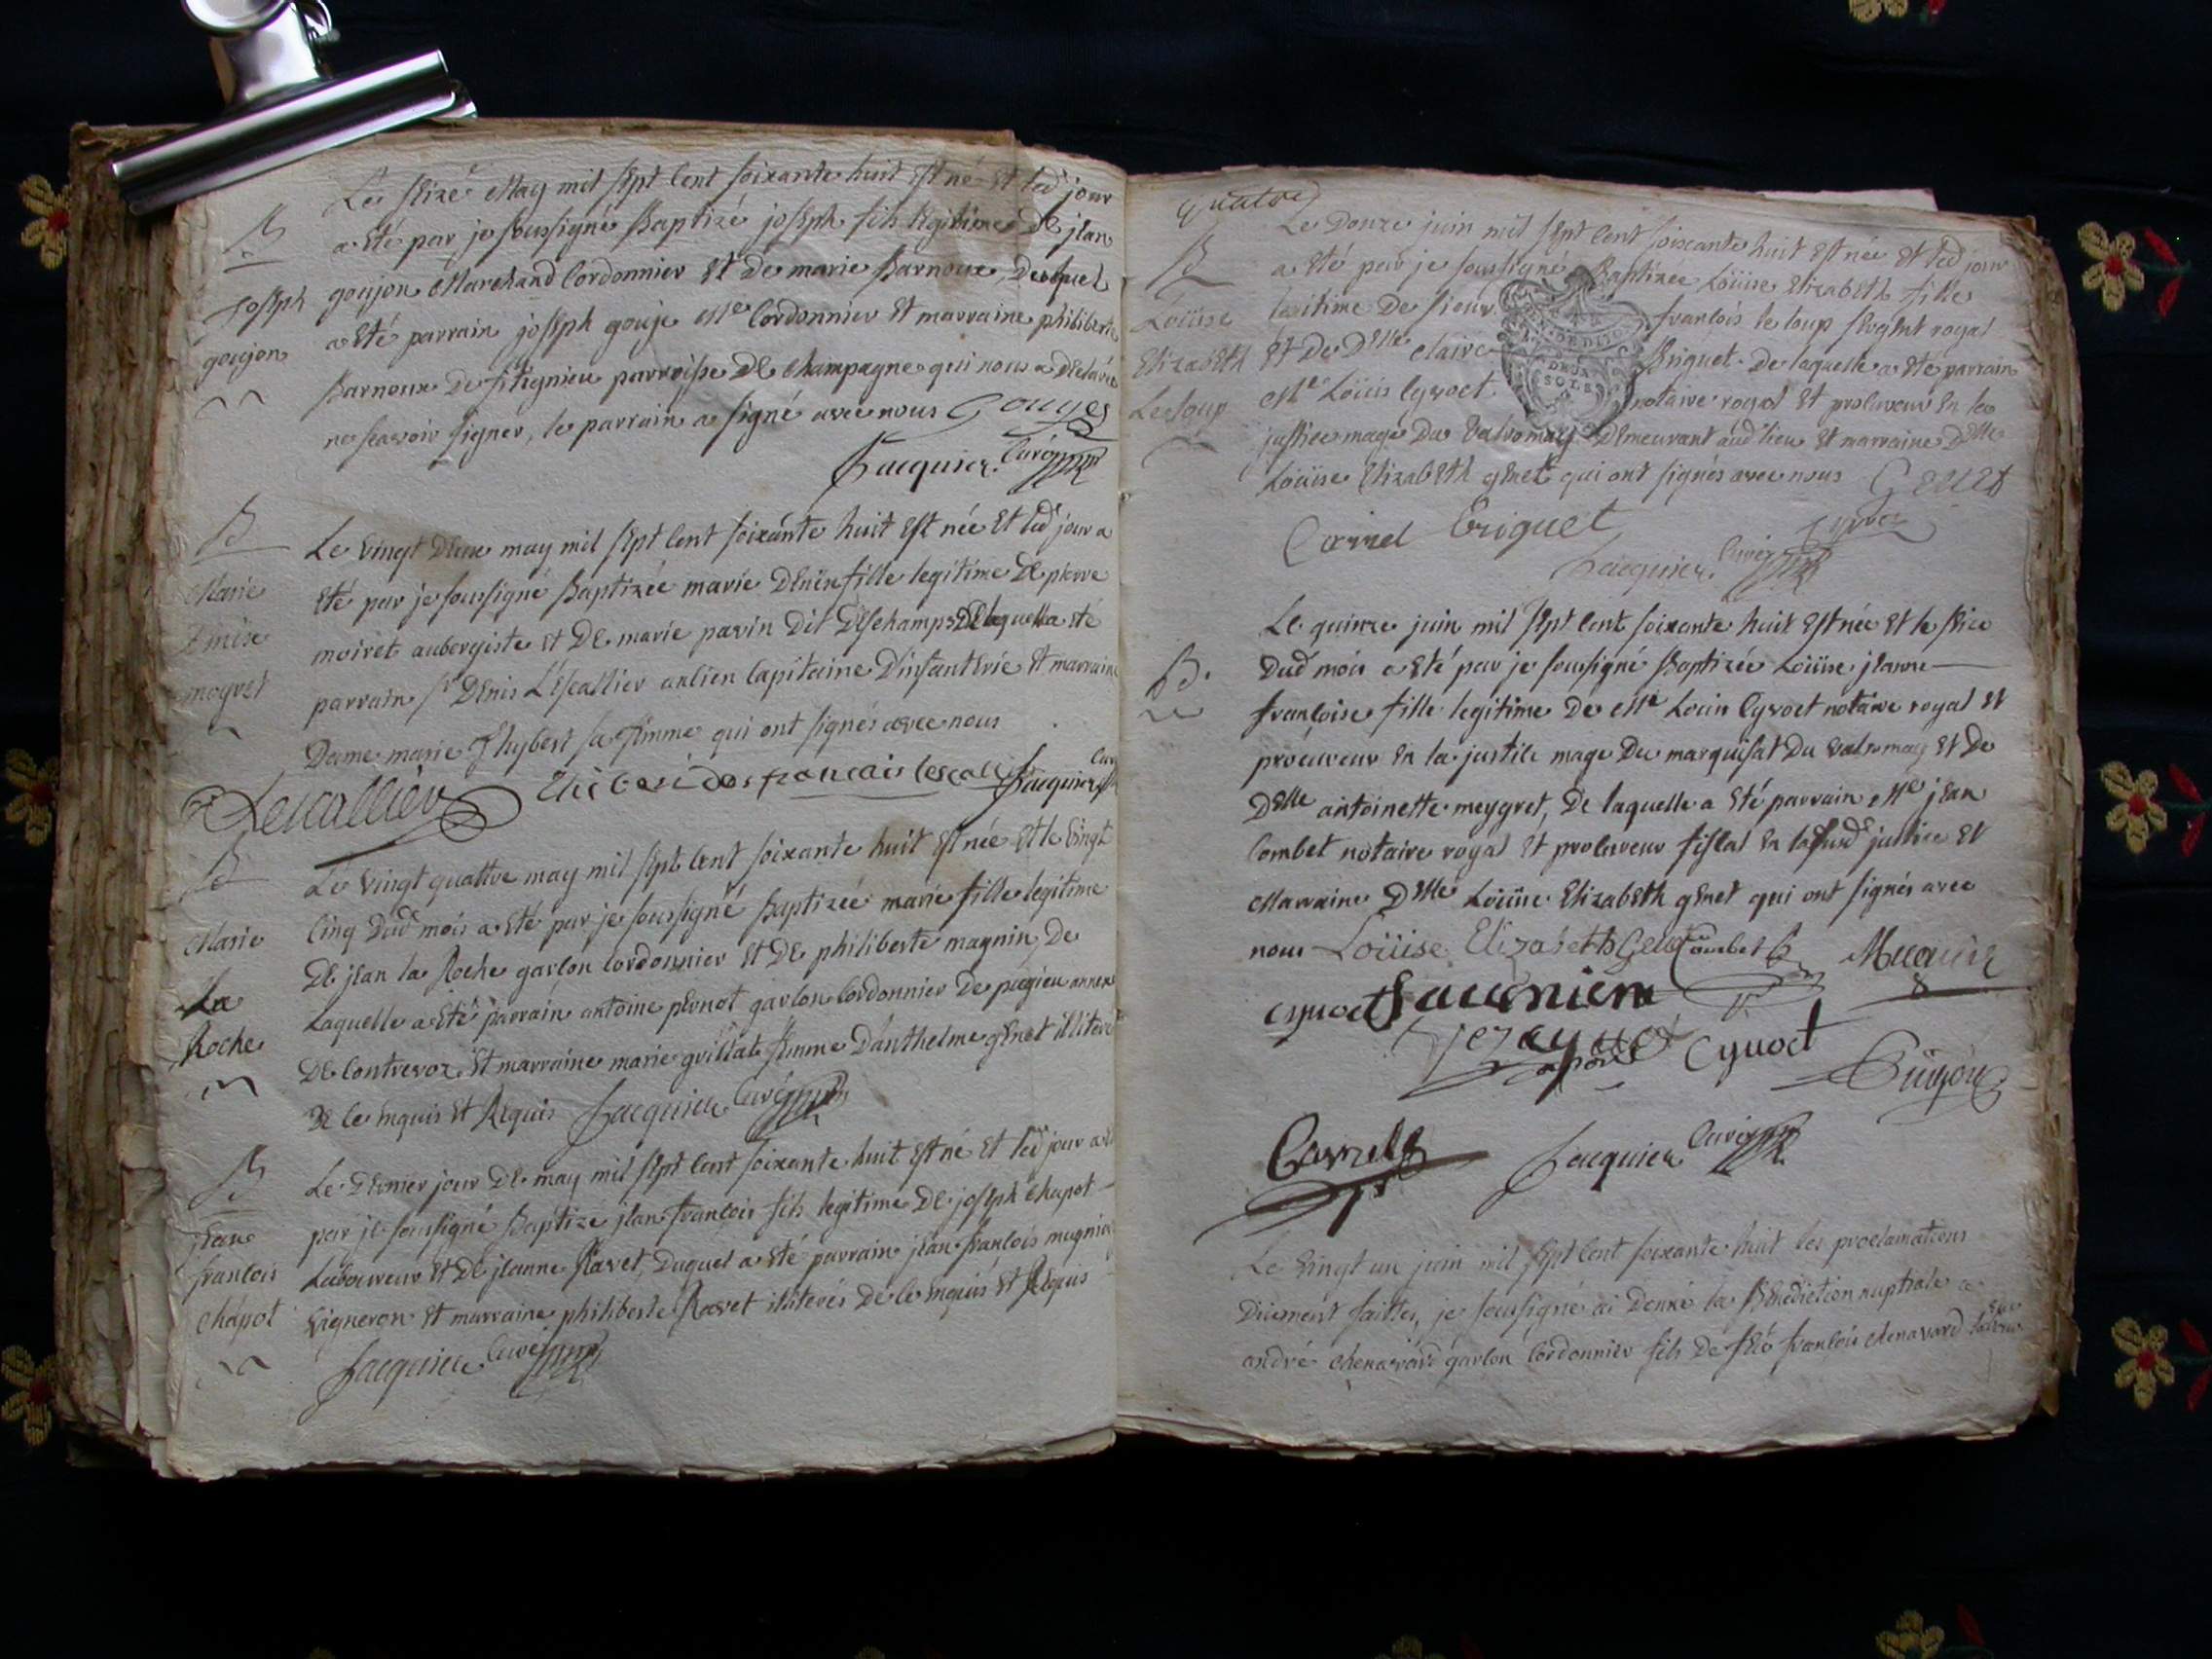 Le seize May mil sept cent soixante huit Est né Et led jour
B
a Eté par je soussigné Baptizé joseph fils legitime de jean
joseph
goujon
goujon Marchand Cordonnier Et de marie Barnoux, Duquel
a Eté parrain joseph gouje Me Cordonnier Et marraine philiberte
Barnoux de fitignieu parroisse De Champagne qui nous a Déclaré
ne scavoir signer, le parrain a signé avec nous Goujes
Jacquier Curé
B
Marie
Denise
moyret
Le vingt Deux may mil sept Cent soixante huit Est née Et led jour a
Eté par je soussigné Baptizée marie Denise fille legitime De pierre
moiret aubergiste Et De marie pavin Dit Deschamps De laquelle a Eté
parrain Sr Denis L'Escallier ancien Capitaine D'infanterie Et marraine
Dame marie Thybert sa femme qui ont signés avec nous
Lescallier francais lescallie Jacquier Curé
B
Marie
La
Roche
Le vingt quattre may mil sept Cent soixante huit Est née Et le vingt
Cinq Dud mois a Eté par je soussigné Baptizée marie fille legitime
De jean la Roche garcon cordonnier Et De philiberte magnin, De
Laquelle a Eté parrain antoine pernot garcon Cordonnier De pugieu annexe
De Contrevoz Et marraine marie guillat femme D'anthelme genet illiteré
De Ce Enquis Et Requis Jacquier Curé
B
jean
francois
Chapot
Le Dernier jour De may mil sept Cent soixante huit Est né Et led jour a Eté
par je soussigné Baptizé jean francois fils legitime De joseph Chapot
Laboureur Et De jeanne Ravet, Duquel a Eté parrain jean francois mugnier
vigneron Et marraine philiberte Ravet illiterés De Ce Enquis Et Requis
Jacquier Curé
quatre
B
Loüise
Elizabeth
Le loup
Le Douze juin mil sept Cent soixante huit Est née Et led jour
a Eté par je soussigné Baptizée Loüise Elizabeth fille
legitime De sieur francois le loup sergent royal
Et De Dlle Claire Briquet. De laquelle a Eté parrain
Me Loüis Cyvoct notaire royal Et procureur En la
justice mage Du valromay Demeurant aud lieu Et marraine Dlle
Loüise Elizabeth genet qui ont signés avec nous Genet
Carrel Briquet Cyvoct
Jacquier Curé
B.
Le quinze juin mil sept Cent soixante huit Est née Et le seize
Dud mois a Eté par je soussigné Baptizée Loüise jeanne
francoise fille legitime De Me Louis Cyvoct notaire royal Et
procureur En la justice mage Du marquisat Du valromay Et De
Dlle antoinette meygret, De laquelle a Eté parrain Me jean
Combet notaire royal Et procureur fiscal En lasusd justice Et
Marraine Dlle Loüise Elizabeth genet qui ont signés avec
nous Loüise Elizabeth Genet Combet
cyvoct
Cyvoct
Carrel
Jacquier Curé
Le vingt un juin mil sept Cent soixante huit les proclamations
Düement faittes, je soussigné ai Donné la Bénédiction nuptiale a
andré Chenavard garcon Cordonnier fils De feu francois chenavard